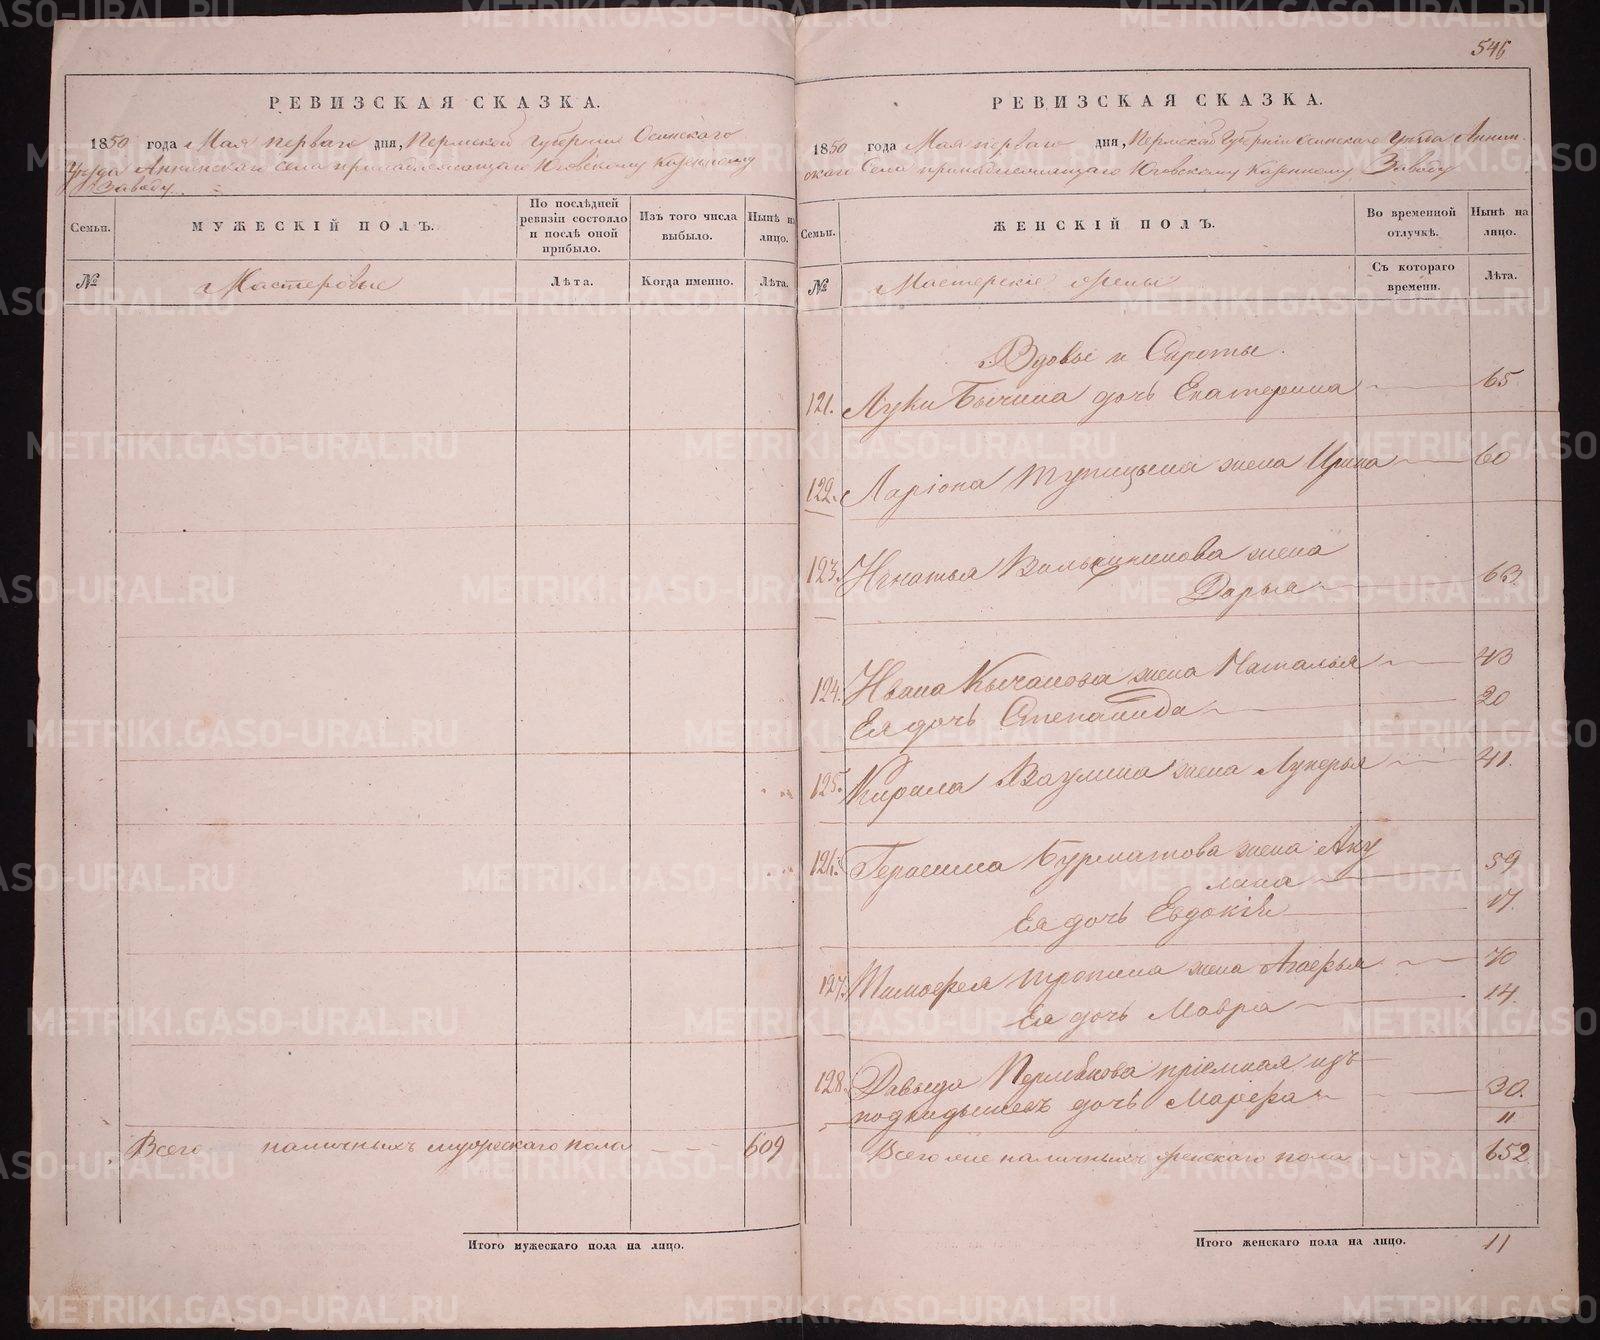 546
РЕВИЗСКАЯ СКАЗКА.
1850 года Мая перваго дня, Пермской губернии Осинскаго
Уезда Аннинскаго села принадлежащаго Юговскому казенному
Заводу.
Семьи.
МУЖЕСКІЙ ПОЛЪ.
По послѣдней ревизіи состояло и послѣ оной прибыло.
Изъ того числа выбыло.
Нынѣ на лицо.
№
Мастеровые
Лѣта.
Когда именно.
Лѣта.
Всего наличныхъ мужескаго пола 609
Итого мужескаго пола на лицо.
РЕВИЗСКАЯ СКАЗКА.
1850 года Мая перваго дня, Пермской Губерніи Осинскаго Уезда Аннин-
скаго Села принадлежащаго Юговскому Казенному Заводу
Семьи.
ЖЕНСКІЙ ПОЛЪ.
Во временной отлучкѣ.
Нынѣ на лицо.
№
Мастерскіе жены
Съ котораго времени.
Лѣта.
Вдовы и Сироты.
121. Луки Бычина дочь Екатерина 65
122. Ларіона Тупицына жена Ирина 60
123. Игнатья жена
Дарья 63
124. Ивана Кычанова жена Наталья 43
Ея дочь Степанида 20
125. Кирила Ваулина жена Лукерья 41.
126. Герасима Бурматова жена Аку
лина 59
Ея дочь Евдокія 17.
127. Тимофея Тропина жена Агафья 70
Ея дочь Мавра 14.
128. Давыда Пермякова пріемная изъ
подкидышевъ дочь Марфа 30.
11
Всего наличныхъ женскаго пола 652
Итого женскаго пола на лицо. 11
METRIKI.GASO-URAL.RU